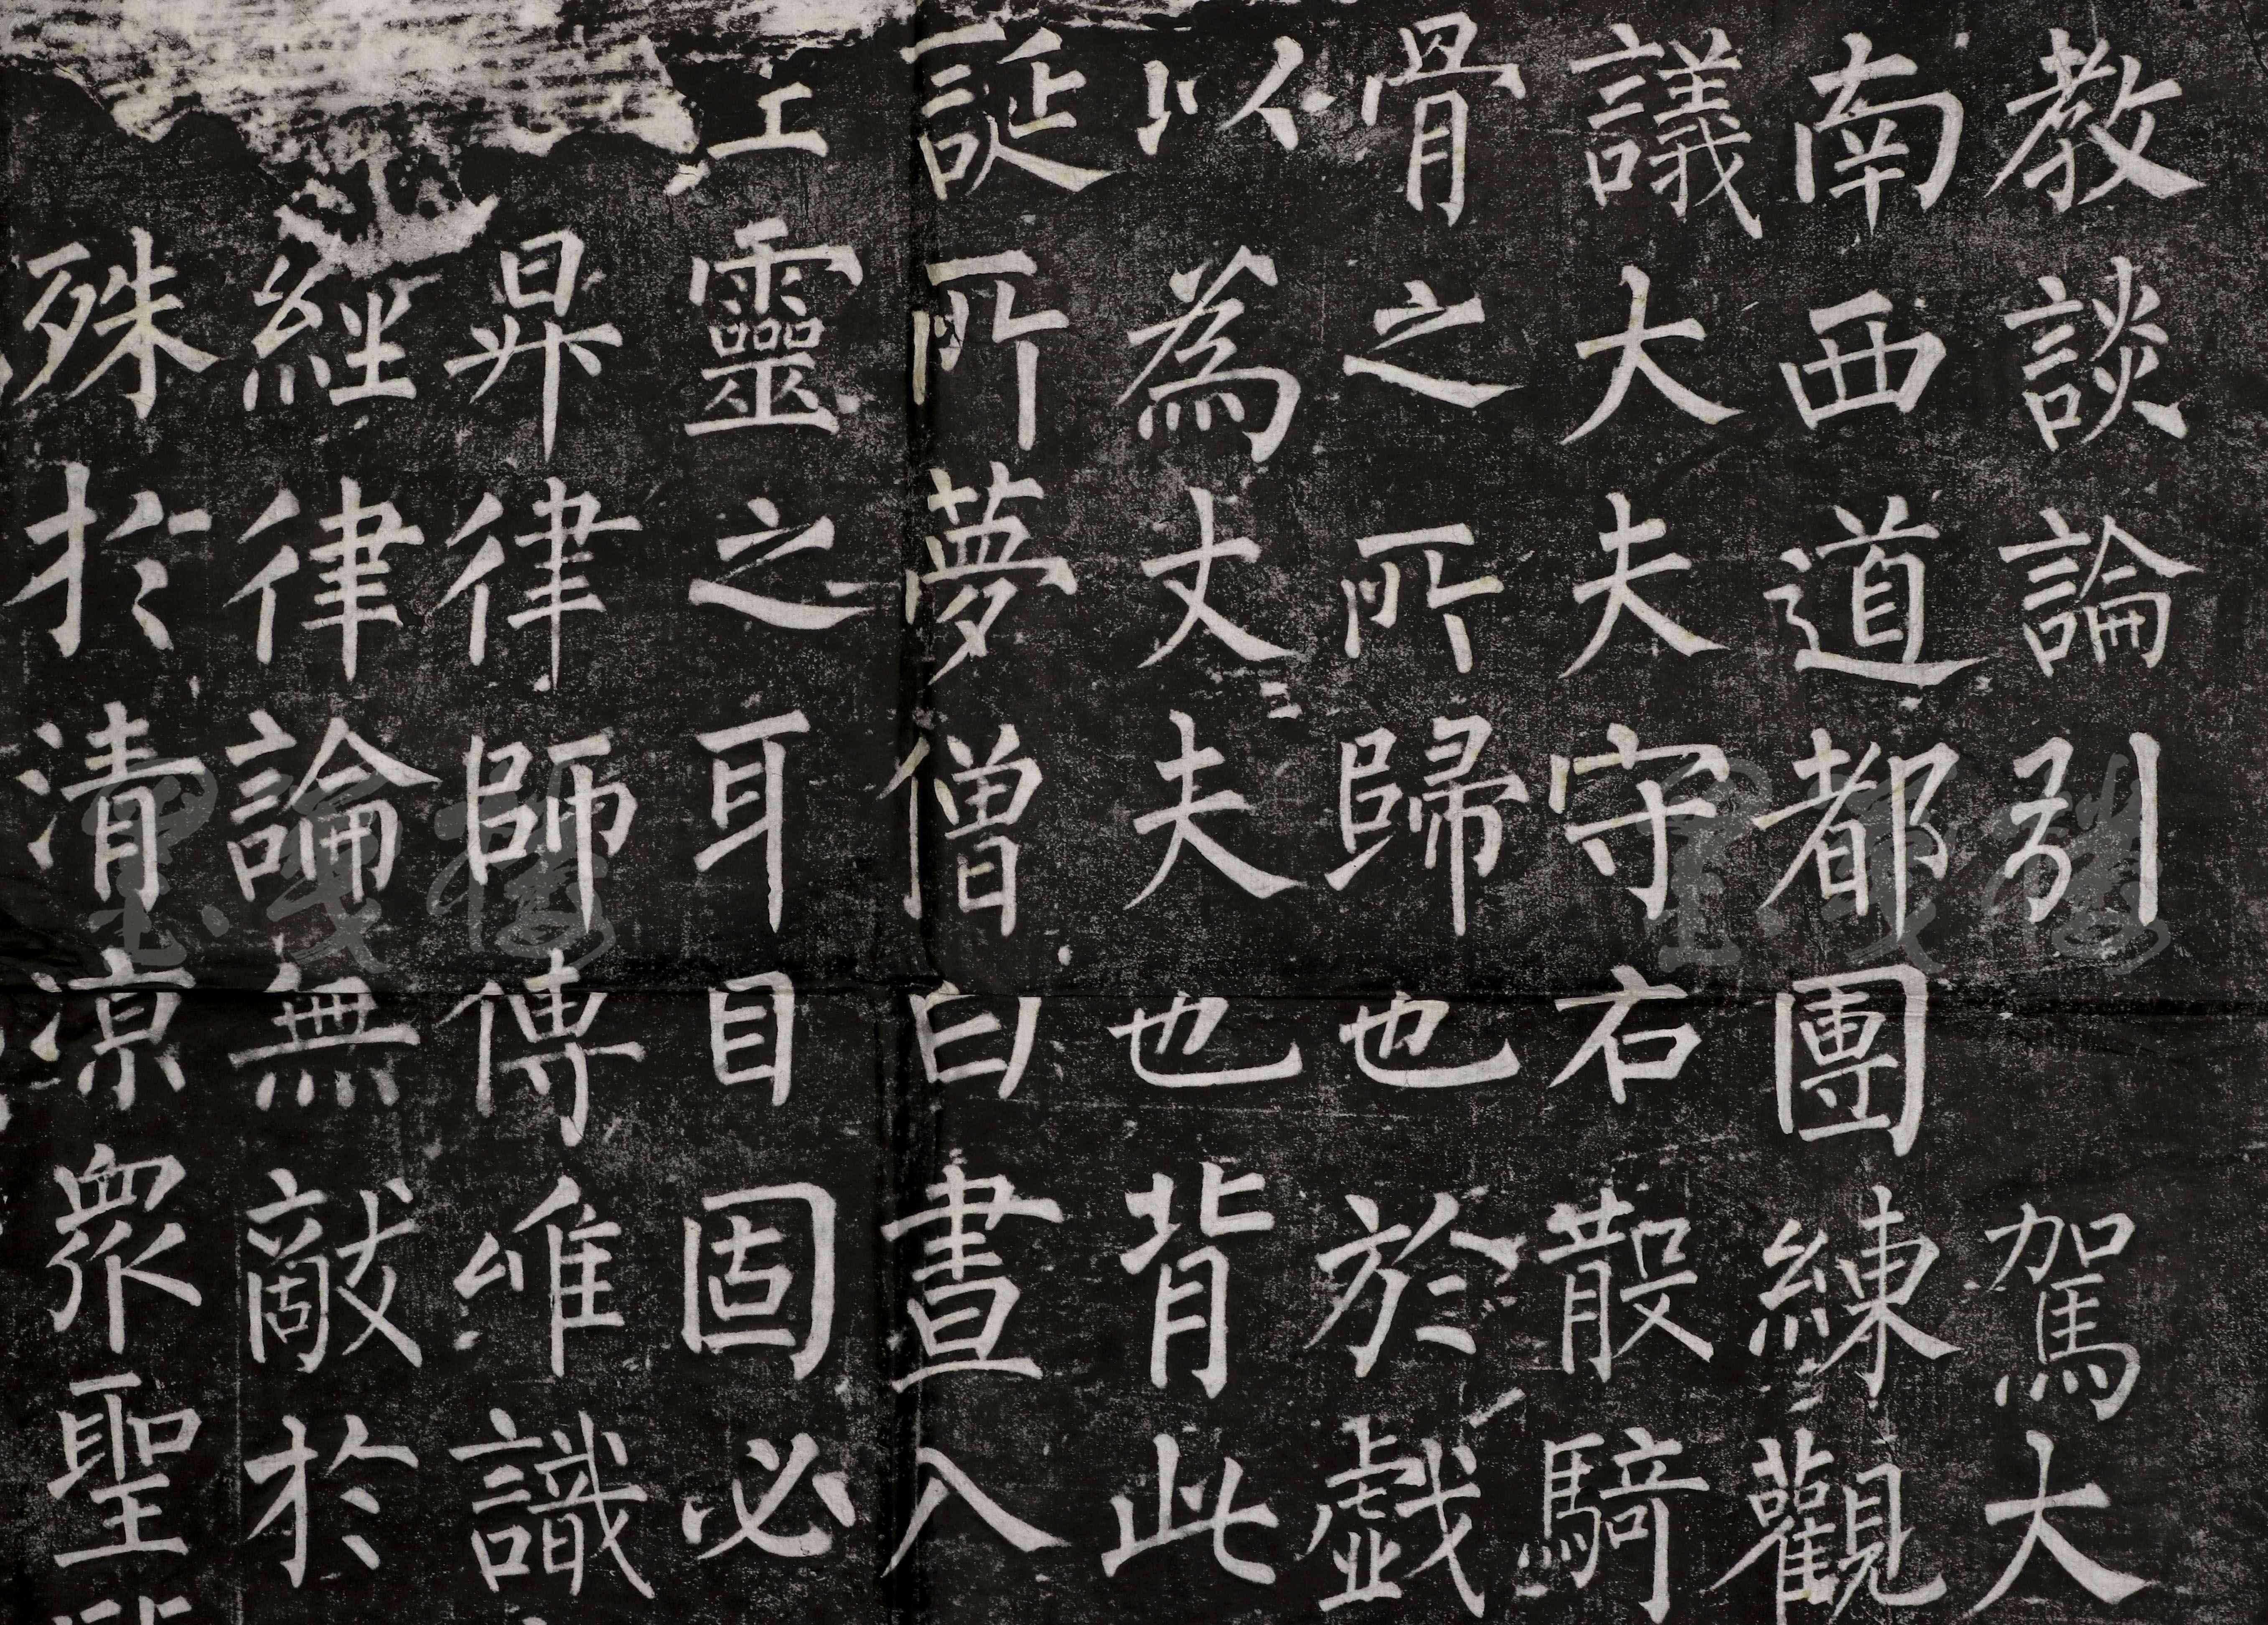 教談論引駕大
南西道都團練觀
議大夫守右散騎
骨之所歸也於戲
以為丈夫也背此
誕所夢僧曰晝入
工靈之耳目固必
昇律師傳唯識
經律論無敵於
殊於清涼眾聖皆